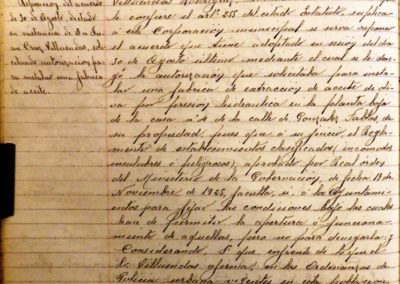 Reposición del acuerdo
de 30 de Agosto, dictado
en instancia de D. Lu
Cruz Villuendas, so
licitando autorización pa
ra instalar una fábrica
de aceite.
Villuendas Rodríguez,
le confiere el artº 255 del citado Estatuto, suplica
a esta Corporación municipal se sirva reponer
el acuerdo que tiene adoptado en sesión del día
30 de Agosto último mediante el cual se le dene
gó la autorización que solicitaba para insta
lar una fábrica de extracción de aceite de oli
va por presión hidráulica en la planta baja
de la casa nº 4 de la calle de González Tablas de
su propiedad, pues que a su juicio, el Regla
mento de establecimientos clasificados, incómodos
insalubres o peligrosos, aprobado por Real orden
del Ministerio de la Gobernación, de fecha 17 de
Noviembre de 1925, faculta, sí, a los Ayuntamien
tos para fijar las condiciones bajo las cuales
han de permitir la apertura i funciona
miento de aquellas, pero no para denegarla; i
Considerando: 1º que enfrente de lo que el
Sr. Villuendas afirma, en las Ordenanzas de
Policía urbana vigentes en esta población